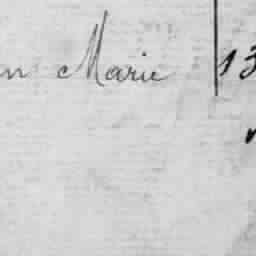 Marie 13